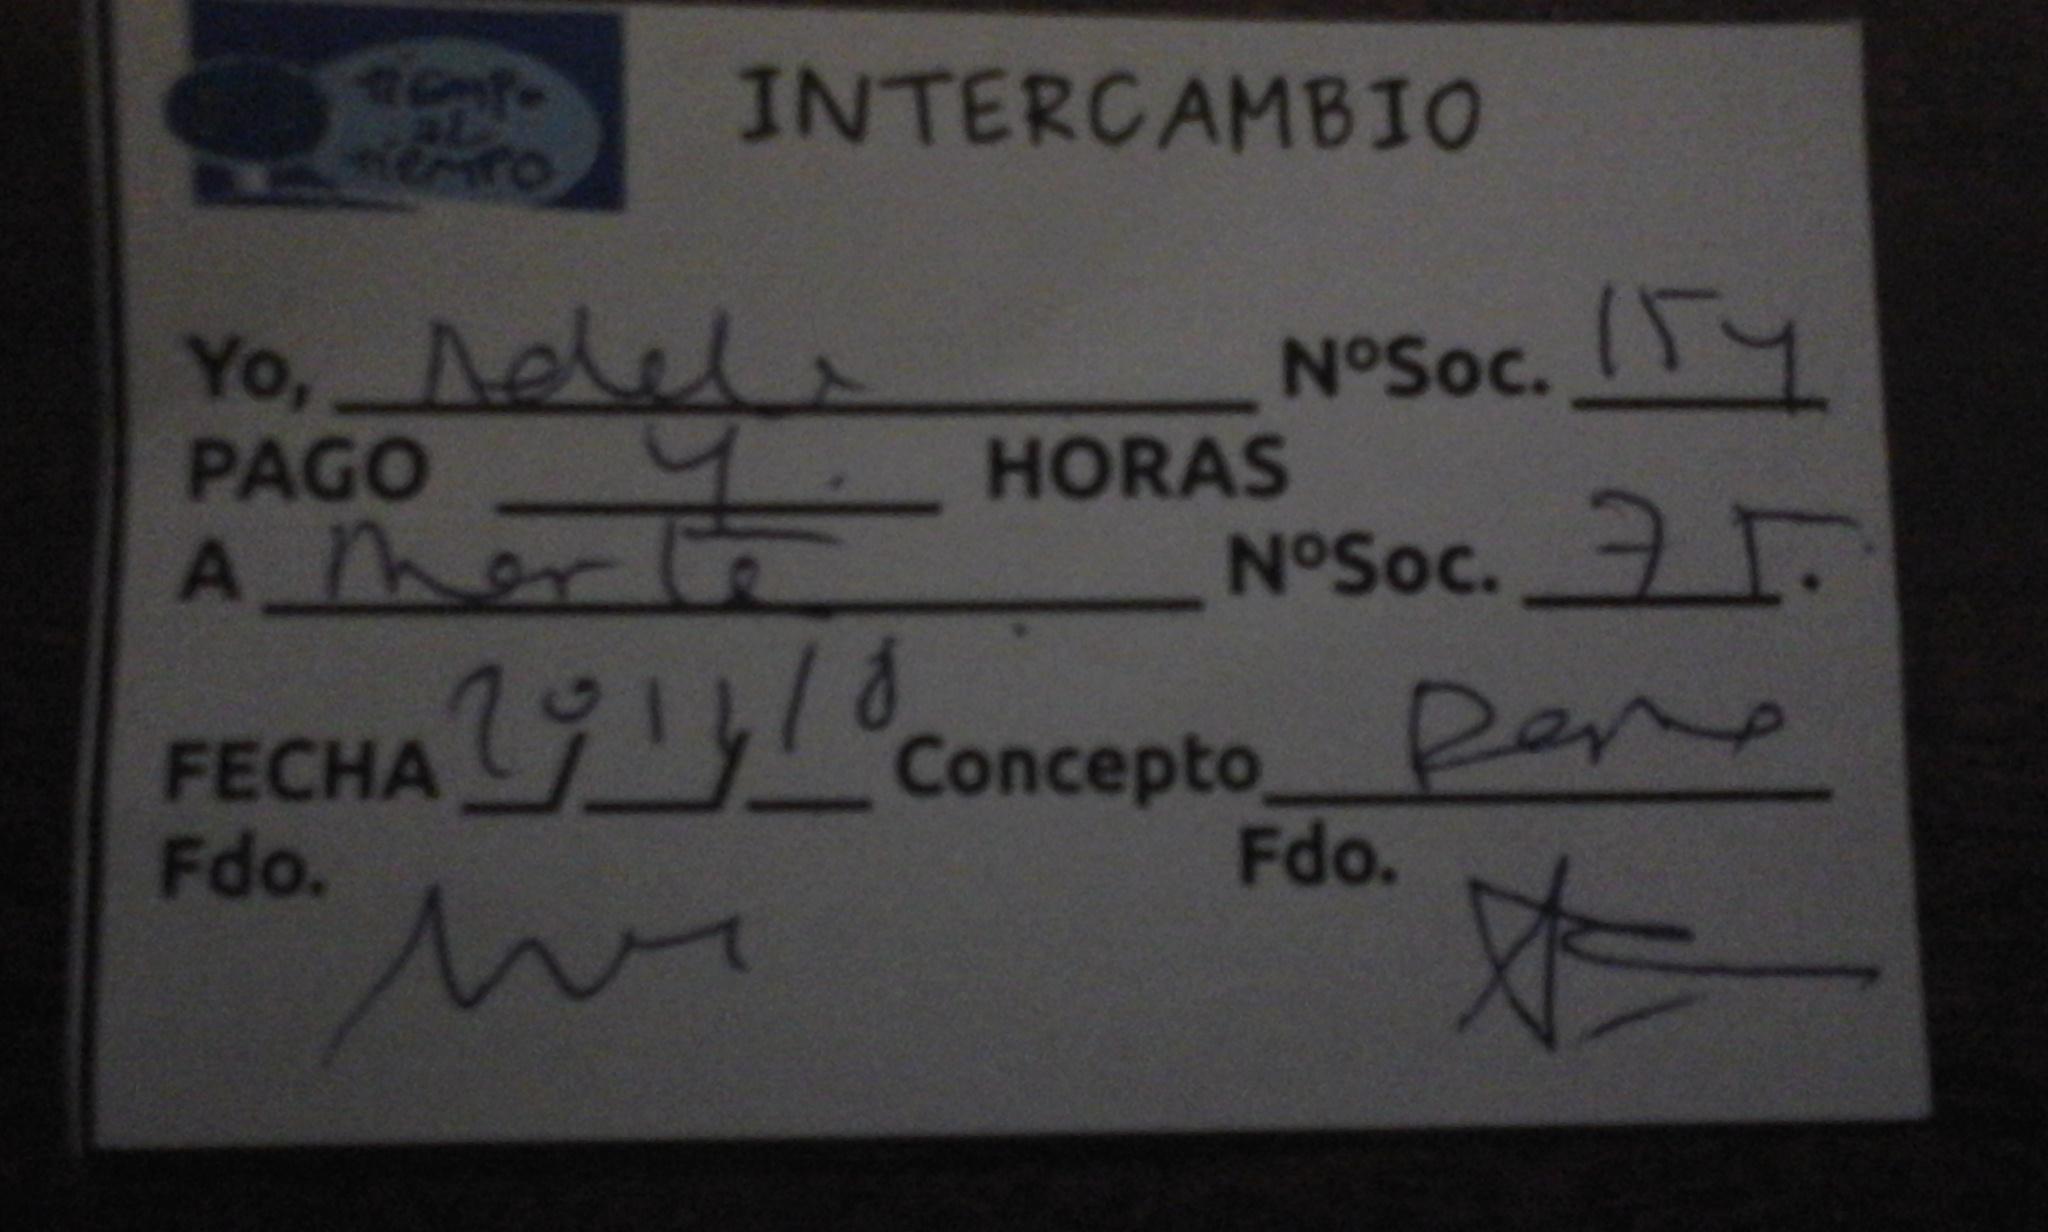 TIEMPO
AL
TIEMPO
INTERCAMBIO
Yo, Adela NºSoc. 154
PAGO 4 HORAS
A Marta NºSoc. 75.
FECHA 20/11/18 Concepto
Fdo. Fdo.